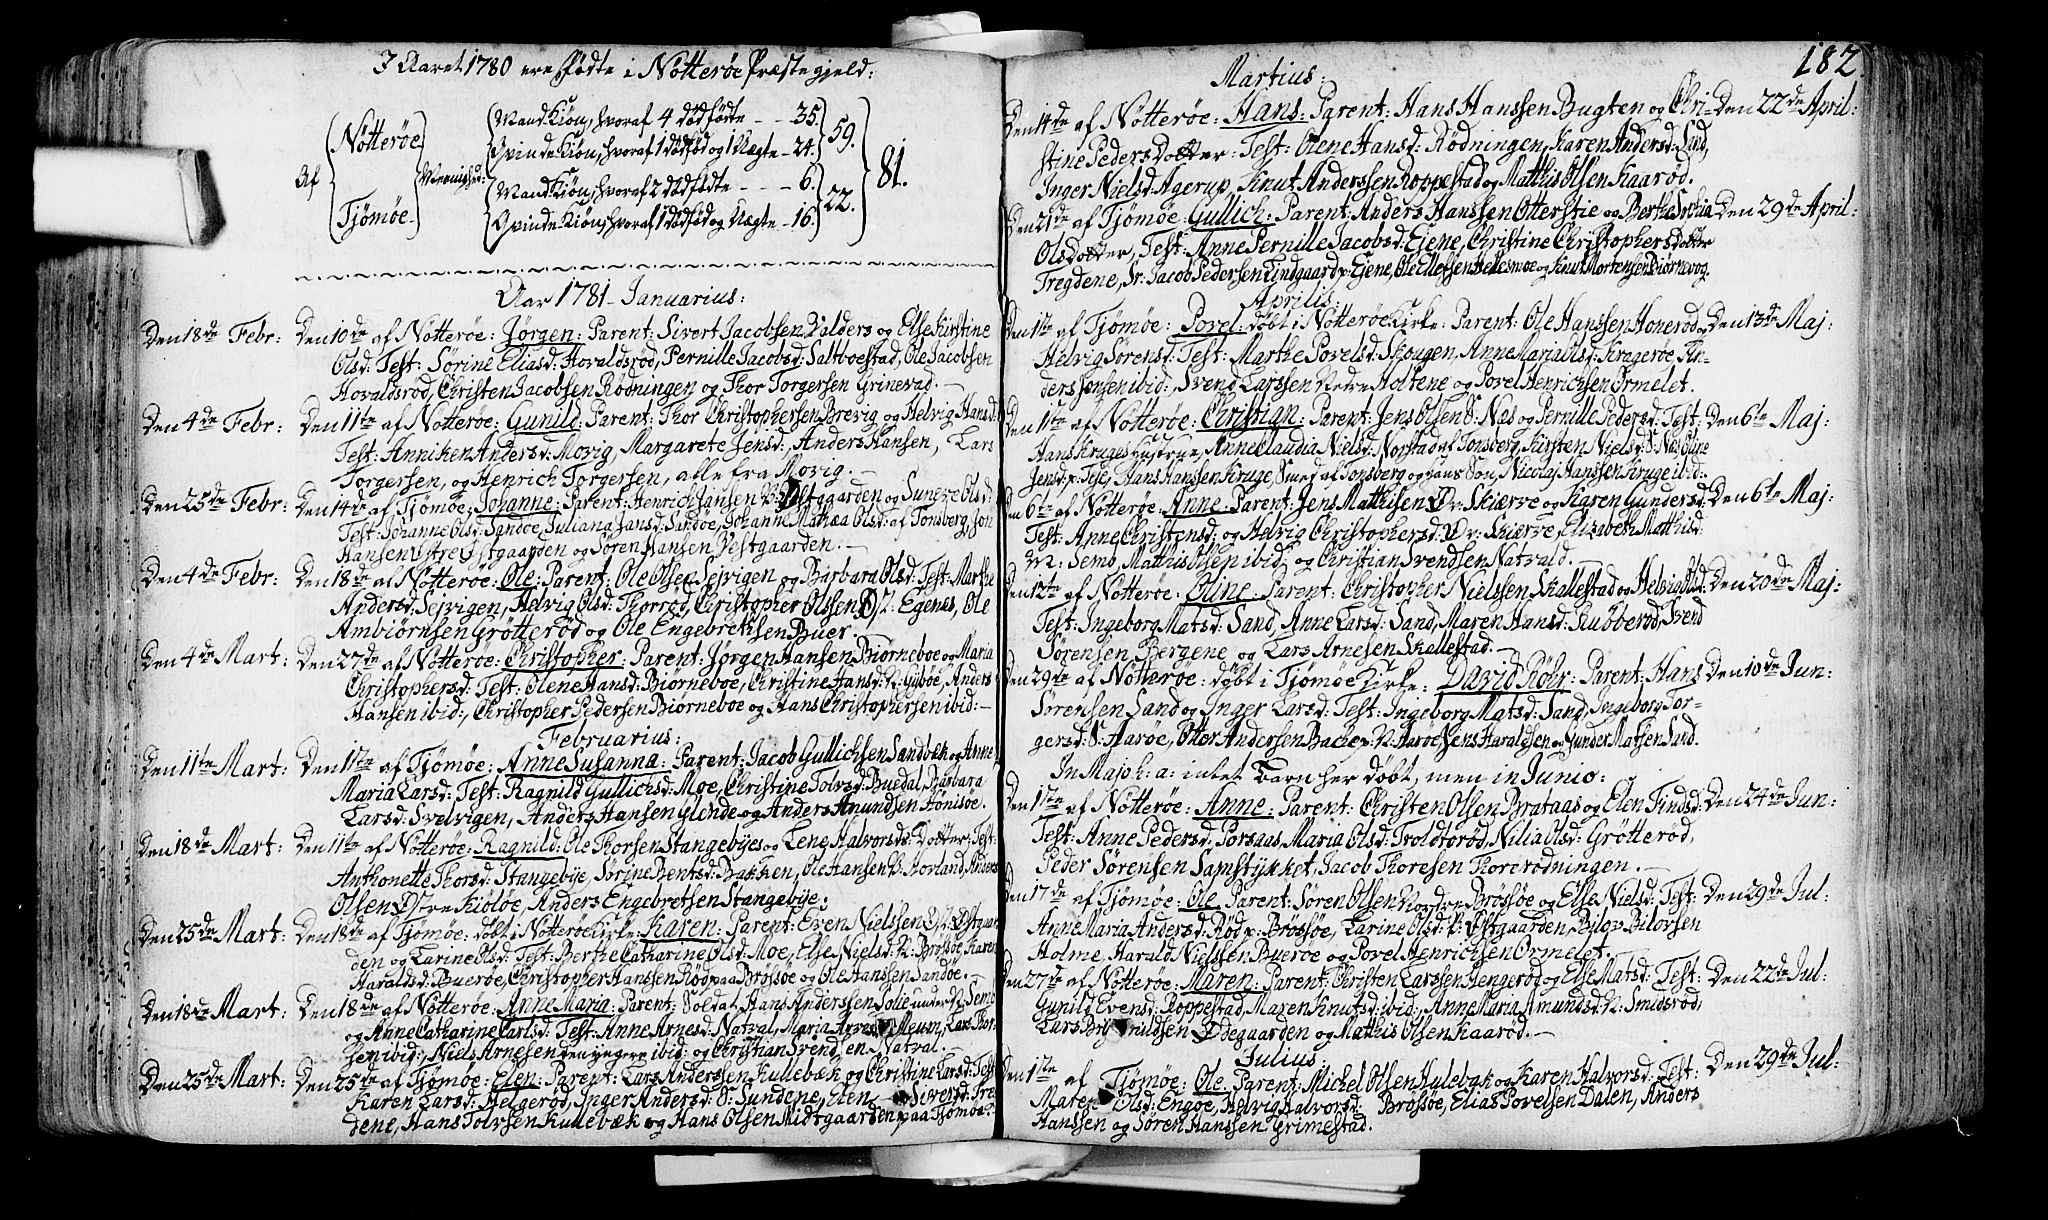 I Aaret 1780 ere fødte i Nøtterøe Præstegjeld:
Af Nøtterøe Menighed: MandKiøn, hvoraf 4 dødfødte - - 35. QvindeKiøn, hvoraf 1 dødfød og 1 Uægte - 24. 59.
Tjømøe MandKiøn, hvoraf 2 dødfødte - - - 6. QvindeKiøn, hvoraf 1 dødfød og Uægte - 16. 22. 81.
Aar 1781 - Januarius:
Den 18de Febr: Den 10de af Nøtterøe: Jørgen: Parent: Sivert Jacobsen Valders og Else Kirstine
Olsd: Test: Sørine Eliasd: Hovaldsrød, Pernille Jacobsd: Saltboestad, Ole Jacobsen
Hovaldsrød, Christen Jacobsen Rødningen og Thor Torgersen Grinevad. -
Den 4de Febr: Den 11te af Nøtterøe: Gunild: Parent: Thor Christophersen Brevig og Helvig Hansd:
Test: Anniken Andersd: Movig, Margarete Jensd:, Anders Hansen, Lars
Torgersen, og Henrich Torgersen, alle fra Movig. -
Den 25de Febr: Den 14de af Tjømøe: Johanne: Parent: Henrich Jansen Østgaarden og Suneve Olsd:
Test: Johanne Olsd: Sandøe, Juliana Jansd: Sandøe, Johanne Mathæa Olsd: af Tønsberg, Jon
Hansen Østre Østgaarden og Søren Hansen Vestgaarden. -
Den 4de Febr: Den 18de af Nøtterøe: Ole: Parent: Ole Olsen Sejvigen og Barbara Olsd: Test: Marthe
Andersd: Sejvigen, Helvig Olsd: Thorrød, Christopher Olssen Ø: Egenes, Ole
Ambiørnsen Grøtterød og Ole Engebretsen Buer
Den 4de Mart: Den 27de af Nøtterøe: Christopher: Parent: Jørgen Hansen Biørneboe og Maria
Christophersd: Test: Olene Hansd: Biørneboe, Christine Hansd: N: Gipøe, Anders
Hansen ibid:, Christopher Pedersen Biørneboe og Hans Christophersen ibid: -
Februarius:
Den 11te Mart: Den 1te af Tjømøe: Anne Susanna: Parent: Jacob Gullichsen Sandbæk og Anne
Maria Larsd: Test: Ragnild Gullichsd: Moe, Christine Tolvsd: Busdal, Barbara
Larsd: Svelvigen, Anders Hansen Glende og Anders Amundsen Hønisøe.
Den 18de Mart: Den 11te af Nøtterøe: Ragnild: Ole Thorsen Stangebyes og Lene Halvorsds: Dotter: Test:
Anthonette Thorsd: Stangebye, Sørine Bentsd: Bakken, Ole Hansen N: Horland, Anders
Olsen Østre Kiøløe, Anders Engebretsen Stangebye:
Den 25de Mart: Den 18de af Tjømøe: døbt i Nøtterøe Kirke: Karen: Parent: Even Nielssen Ø: Østgaar-
den og Larine Olsd: Test: Berthe Catharine Olsd: Moe, Else Nielsd: N: Brøssøe, Karen
Haraldsd: Buerøe, Christopher Hanssen Rød paa Brøssøe og Ole Hanssen Sandøe. -
Den 18de Mart: Den 18de af Nøtterøe: Anne Maria: Parent: Soldat Hans Anderssen Solie under N: Semb
og Anne Catharine Carlsd: Test: Anne Arnesd: Natval, Maria Arnesd: Meum, Lars Thor-
sen ibid:, Niels Arnesen den yngere ibid: og Christian Svendsen Natval. -
Den 25de Mart: Den 25de af Tjømøe: Elen: Parent: Lars Anderssen Kullebæk og Christine Larsd: Test:
Karen Larsd: Helgerød, Inger Andersd: S: Sundene, Elen Siversd: Tre-
dene, Hans Tolvsen Kullebæk og Hans Olsen Midtgaarden paa Tjømøe.
182.
Martius:
Den 14de af Nøtterøe: Hans: Parent: Hans Hanssen Bugten og Chri- Den 22de April:
stine Peders Dotter: Test: Olene Hansd: Rødningen, Karen Andersd: Lind,
Inger Nielsd: Agerup, Knut Anderssen Roppestad og Matthis Olsen Kaarød.
Den 21de af Tjømøe: Gullich: Parent: Anders Hanssen Otterstie og Berthe Sophia Den 29de April:
Olsdotter, Test: Anne Pernille Jacobsd: Ejene, Christine Christophersdotter
Tregdene, Sr: Jacob Pedersen Lindgaard p: Ejene, Ole Ellefsen Hellesmoe og Knut Mortensen Biørnevog.
Aprilis:
Den 1te af Tjømøe: Povel: døbt i Nøtterøe Kirke: Parent: Ole Hanssen Honerød og Den 13de Maj:
Helvig Sørensd: Test: Marthe Povelsd: Skougen, Anne Maria Olsd: Kragerøe, An-
ders Jonsen ibid:, Svend Larssen Nedre Holtene og Povel Henrichsen Ormelet.
Den 1te af Nøtterøe: Christian: Parent: Jens Olsen S: Næs og Pernille Pedersd: Test: Den 6te Maj:
Hans Kruges Hustrue, Anne Claudia Nielsd: Norstad af Tønsberg, Kirsten Nielsd: S: Næs, Oline
Jensd: p: Teje, Hans Hanssen Kruge, Smed af Tønsberg og hans Søn, Nicolaj Hanssen Kruge ibid:
Den 6te af Nøtterøe: Anne: Parent: Jens Matthisen Ø: Skierve og Karen Gundersd: Den 6te Maj:
Test: Anne Christensd: og Helvig Christophersd: Ø: Skierve, Elisabeth Mathisd:
M: Semb, Matthis Olsen ibid: og Christian Svendsen Natvald. -
Den 12te af Nøtterøe: Oline: Parent: Christopher Nielssen Skallestad og Helvig Olsd: Den 20de Maj:
Test: Ingeborg Matsd: Sand, Anne Larsd: Sand, Maren Hansd: Stubberød, Svend
Sørensen Bergene og Lars Arnesen Skallestad. -
Den 29de af Nøtterøe: døbt i Tjømøe Kirke: David Röhr: Parent: Hans Den 10de Jun:
Sørensen Sand og Inger Larsd: Test: Ingeborg Matsd: Sand, Ingeborg Tor-
gersd: S: Aarøe, Otter Andersen Backe p: N: Aarøe, Jens Haraldsen og Gunder Matsen Sand.
In Majo h: a: intet Barn her døbt, men in Junio:
Den 1te af Nøtterøe: Anne: Parent: Christen Olsen Brataas og Elen Findsd: Den 24de Jun:
Test: Anne Pedersd: Porsaas, Maria Olsd: Troldtorød, Nilia Olsd: Grøtterød,
Peder Sørensen Samstykket, Jacob Thoresen Thorerødningen. -
Den 17de af Tjømøe: Ole: Parent: Søren Olsen Nordre Brøssøe og Else Nielsd: Test: Den 29de Jul:
Anne Maria Andersd: Rød p: Brøssøe, Larine Olsd: p: Østgaarden, Bilov Bilovsen
Holme, Harald Nielssen Buerøe og Povel Henrichsen Ormelet.
Den 27de af Nøtterøe: Maren: Parent: Christen Larssen Hengerød og Else Matsd: Test: Den 22de Jul:
Gunild Evensd: Roppestad, Maren Knutsd: ibid:, Anne Maria Amundsd: N: Smidsrød,
Lars Brynildsen Ødegaarden og Matthis Olsen Kaarød. -
Julius:
Den 1ste af Tjømøe: Ole: Parent: Michel Olsen Hulebak og Karen Halvorsd: Test: Den 29de Jul:
Mate Olsd: Engøe, Helvig Halvorsd: Brøssøe, Elias Povelsen Dalen, Anders
Hanssen og Søren Hanssen Grimestad.